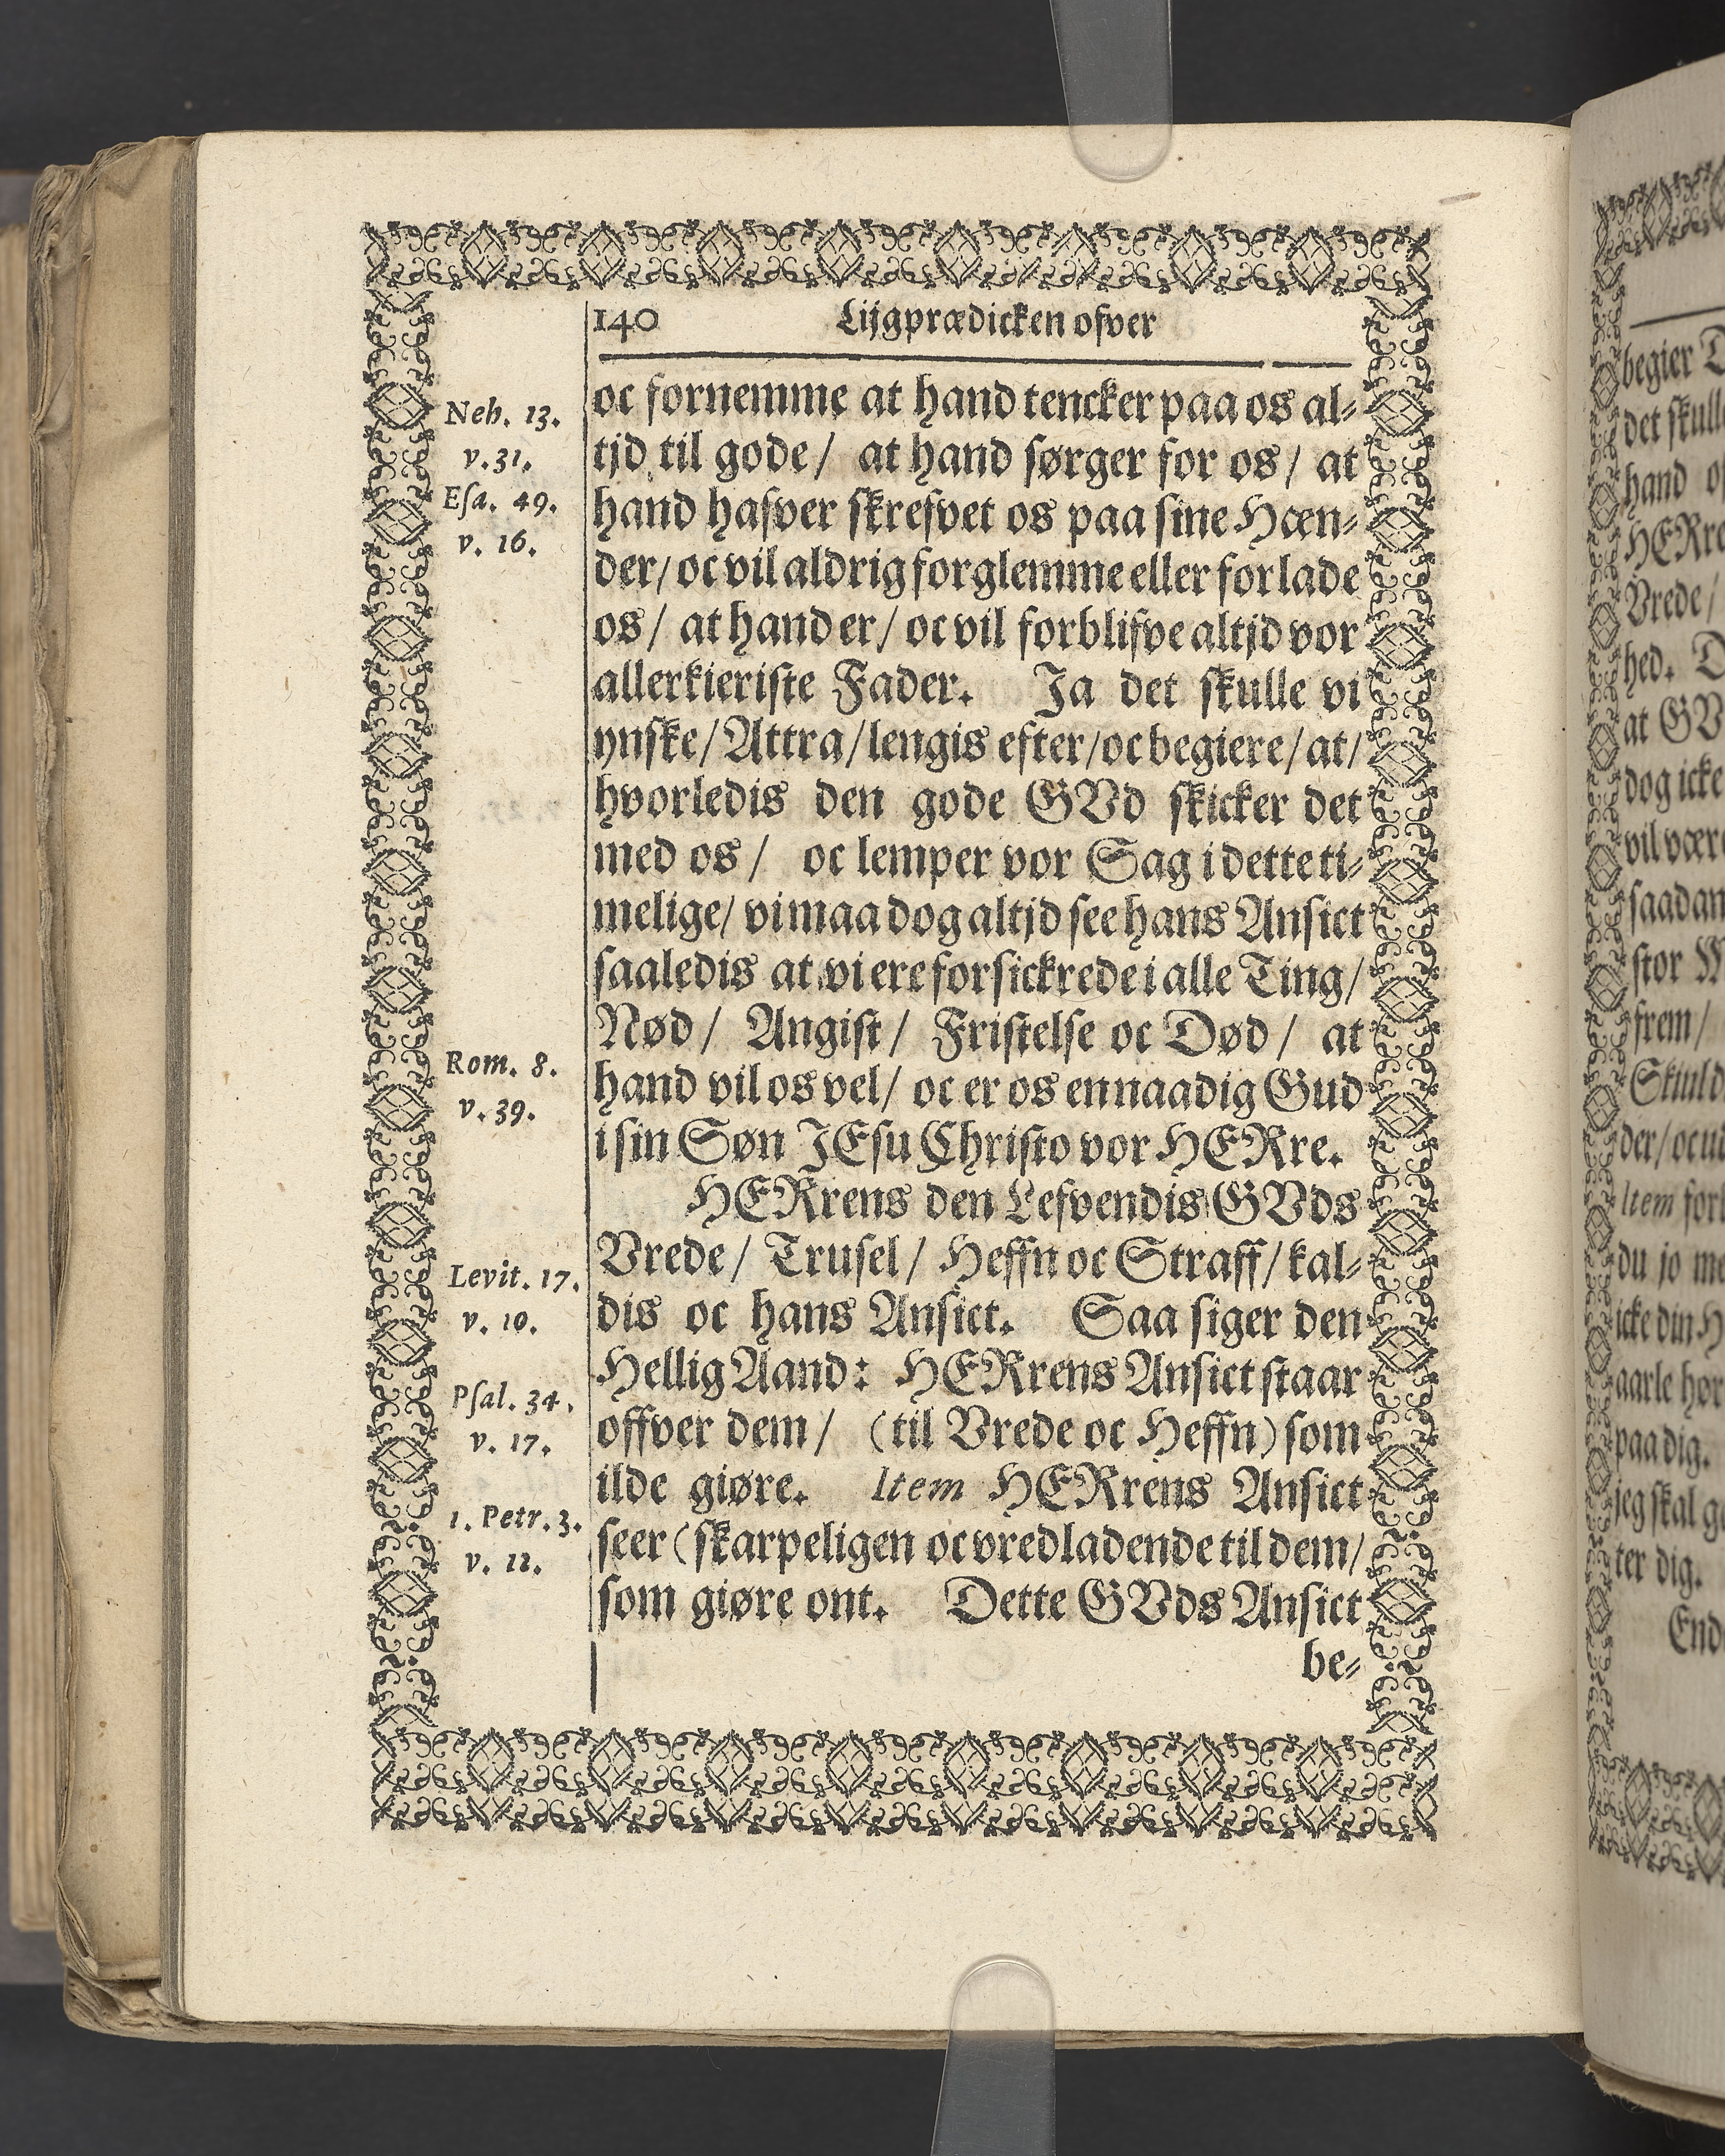 140 Lijgprædicken ofver
Neh. 13.
v. 31.
Eſa. 49.
v. 16.
Rom. 8.
v. 39.
Levit. 17.
v. 10.
Pſal. 34.
v. 17.
1. Petr. 3.
v. 12.
oc fornemme at hand tencker paa os al-
tjd til gode/ at hand ſørger for os/ at
hand hafver ſkrefvet os paa ſine Hæn-
der/ oc vil aldrig forglemme eller forlade
os/ at hand er/ oc vil forblifve altjd vor
allerkieriſte Fader. Ja det ſkulle vi
ynſke/ Attra/ lengis efter/ oc begiere/ at/
hvorledis den gode GVd ſkicker det
med os/ oc lemper vor Sag i dette ti-
melige/ vi maa dog altjd ſee hans Anſict
ſaaledis at vi ere forſickrede i alle Ting/
Nød/ Angiſt/ Friſtelſe oc Død/ at
hand vil os vel/ oc er os en naadig Gud
i ſin Søn JEſu Chriſto vor HERre.
HERrens den Lefvendis GVds
Vrede/ Truſel/ Heffn oc Straff/ kal-
dis oc hans Anſict. Saa ſiger den
Hellig Aand: HERrens Anſict ſtaar
offver dem/ (til Vrede oc Heffn) ſom
ilde giøre. Item HERrens Anſict
ſeer (ſkarpeligen oc vredladende til dem/
ſom giøre ont. Dette GVds Anſict
be-
begier
det ſkull
hand
HERre
Vrede/
hed.
at GV
dog icke
vil vær
ſaadan
ſtor
frem/
Skuld
der/ oc
Item for
du jo me
icke din H
aarle hør
paa dig.
jeg ſkal g
ter dig.
End